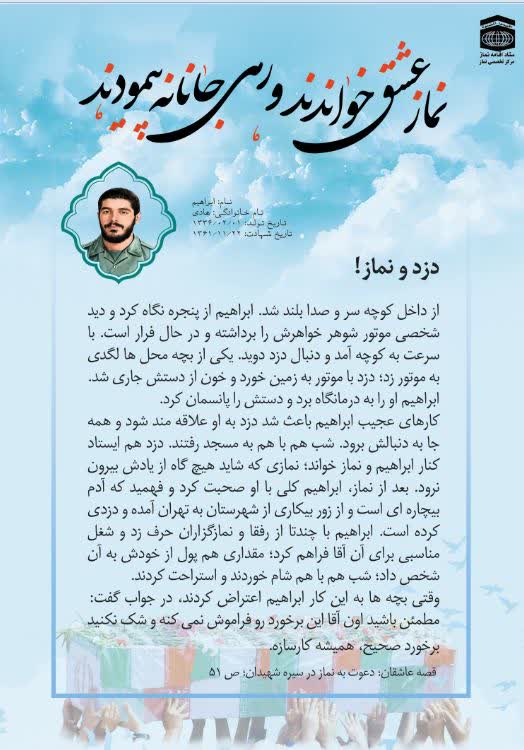 ستاد اقامه نماز
مرکز تخصصی نماز
نماز عشق خواندند و رهی جانانه پیمودند
نام: ابراهیم
نام خانوادگی: هادی
تاریخ تولد: ۱۳۳۶/۰۲/۰۱
تاریخ شهادت: ۱۳۶۱/۱۱/۲۲
دزد و نماز!
از داخل کوچه سر و صدا بلند شد. ابراهیم از پنجره نگاه کرد و دید
شخصی موتور شوهر خواهرش را برداشته و در حال فرار است. با
سرعت به کوچه آمد و دنبال دزد دوید. یکی از بچه محل ها لگدی
به موتور زد؛ دزد با موتور به زمین خورد و خون از دستش جاری شد.
ابراهیم او را به درمانگاه برد و دستش را پانسمان کرد.
کارهای عجیب ابراهیم باعث شد دزد به او علاقه مند شود و همه
جا به دنبالش برود. شب هم با هم به مسجد رفتند. دزد هم ایستاد
کنار ابراهیم و نماز خواند؛ نمازی که شاید هیچ گاه از یادش بیرون
نرود. بعد از نماز، ابراهیم کلی با او صحبت کرد و فهمید که آدم
بیچاره ای است و از زور بیکاری از شهرستان به تهران آمده و دزدی
کرده است. ابراهیم با چندتا از رفقا و نمازگزاران حرف زد و شغل
مناسبی برای آن آقا فراهم کرد؛ مقداری هم پول از خودش به آن
شخص داد؛ شب هم با هم شام خوردند و استراحت کردند.
وقتی بچه ها به این کار ابراهیم اعتراض کردند، در جواب گفت:
مطمئن باشید اون آقا این برخورد رو فراموش نمی کنه و شک نکنید
برخورد صحیح، همیشه کارسازه.
قصه عاشقان؛ دعوت به نماز در سیره شهیدان؛ ص ۵۱